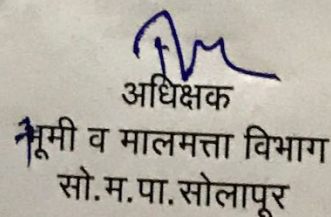 अधिक्षक
भूमी व मालमत्ता विभाग
सो.म.पा.सोलापूर